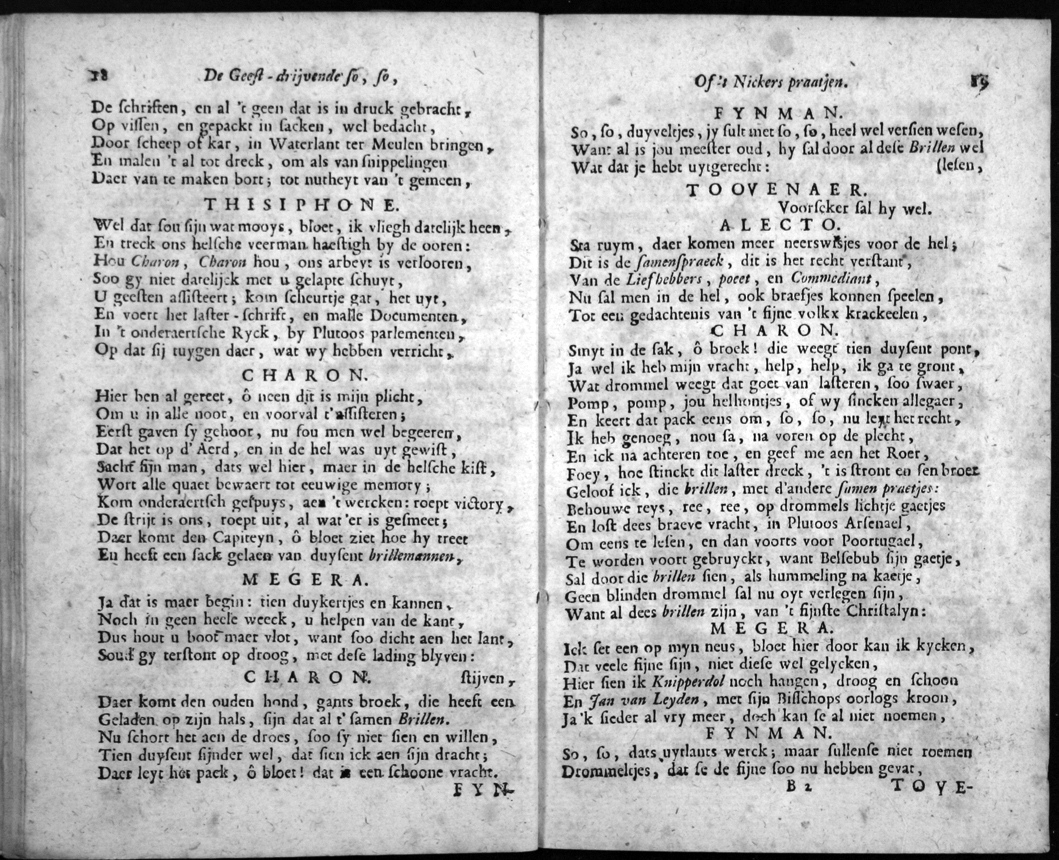 18 De Geeſt-drijvende ſo, ſo,
De ſchriften, en al 't geen dat is in druck gebracht,
Op viſſen, en gepackt in ſacken, wel bedacht,
Door ſcheep of kar, in Waterlant ter Meulen bringen,
En malen 't al tot dreck, om als van ſnippelingen
Daer van te maken bort; tot nutheyt van 't gemeen,
THISIPHONE.
Wel dat ſou ſijn wat mooys, bloet, ik vliegh datelijk heen,
En treck ons helſche veerman haeſtigh by de ooren:
Hou Charon, Charon hou, ons arbeyt is verlooren,
Soo gy niet datelijck met u gelapte ſchuyt,
U geeſten aſſiſteert; kom ſcheurtje gar, het uyt,
En voert het laſter-ſchrift, en malle Documenten,
In 't onderaertſche Ryck, by Plutoos parlementen,
Op dat ſij tuygen daer, wat wy hebben verricht,
CHARON.
Hier ben al gereet, ô neen dit is mijn plicht,
Om u in alle noot, en voorval t'aſſiſteren;
Eerſt gaven ſy gehoor, nu ſou men wel begeeren,
Dat het op d'Aerd, en in de hel was uyt gewiſt,
Sacht ſijn man, dats wel hier, maer in de helſche kiſt,
Wort alle quaet bewaert tot eeuwige memory;
Kom onderaertſch geſpuys, aen 't wercken: roept victory,
De ſtrijt is ons, roept uit, al wat 'er is geſmeet;
Daer komt den Capiteyn, ô bloet ziet hoe hy treet
En heeft een ſack gelaen van duyſent brillemannen,
MEGERA.
Ja dat is maer begin: tien duykertjes en kannen,
Noch in geen heele weeck, u helpen van de kant,
Dus hout u boot maer vlot, want ſoo dicht aen het lant,
Soud gy terſtont op droog, met deſe lading blyven:
CHARON. ſtijven,
Daer komt den ouden hond, gants broek, die heeft een
Geladen op zijn hals, ſijn dat al t'ſamen Brillen.
Nu ſchort het aen de droes, ſoo ſy niet ſien en willen,
Tien duyſent ſijnder wel, dat ſien ick aen ſijn dracht;
Daer leyt het pack, ô bloet! dat is een ſchoone vracht.
FYN-
Of 't Nickers praatjen. 19
FYNMAN.
So, ſo, duyveltjes, jy ſult met ſo, ſo, heel wel verſien weſen,
Want al is jou meeſter oud, hy ſal door al deſe Brillen wel
Wat dat je hebt uytgerecht: (leſen,
TOOVENAER.
Voorſeker ſal hy wel.
ALECTO.
Sta ruym, daer komen meer neerswisjes voor de hel;
Dit is de ſamenſpraeck, dit is het recht verſtant,
Van de Liefhebbers, poeet, en Commediant,
Nu ſal men in de hel, ook braefjes konnen ſpeelen,
Tot een gedachtenis van 't fijne volkx krackeelen,
CHARON.
Smyt in de ſak, ô broek! die weegt tien duyſent pont,
Ja wel ik heb mijn vracht, help, help, ik ga te gront,
Wat drommel weegt dat goet van laſteren, ſoo ſwaer,
Pomp, pomp, jou helhontjes, of wy ſincken allegaer,
En keert dat pack eens om, ſo, ſo, nu leyt het recht,
Ik heb genoeg, nou ſa, na voren op de plecht,
En ick na achteren toe, en geef me aen het Roer,
Foey, hoe ſtinckt dit laſter dreck, 't is ſtront en ſen broer
Geloof ick, die brillen, met d'andere ſamen praetjes:
Behouwe reys, ree, ree, op drommels lichtje gaetjes
En loſt dees braeve vracht, in Plutoos Arſenael,
Om eens te leſen, en dan voorts voor Poortugael,
Te worden voort gebruyckt, want Belſebub ſijn gaetje,
Sal door die brillen ſien, als hummeling na kaetje,
Geen blinden drommel ſal nu oyt verlegen ſijn,
Want al dees brillen zijn, van 't fijnſte Chriſtalyn:
MEGERA.
Ick ſet een op myn neus, bloet hier door kan ik kycken,
Dat veele fijne ſijn, niet dieſe wel gelycken,
Hier ſien ik Knipperdol noch hangen, droog en ſchoon
En Jan van Leyden, met ſijn Biſſchops oorlogs kroon,
Ja'k ſieder al vry meer, doch kan ſe al niet noemen,
FYNMAN.
So, ſo, dats uytlants werck; maar ſullenſe niet roemen
Drommeltjes, dat ſe de fijne ſoo nu hebben gevat,
B 2 TOVE-